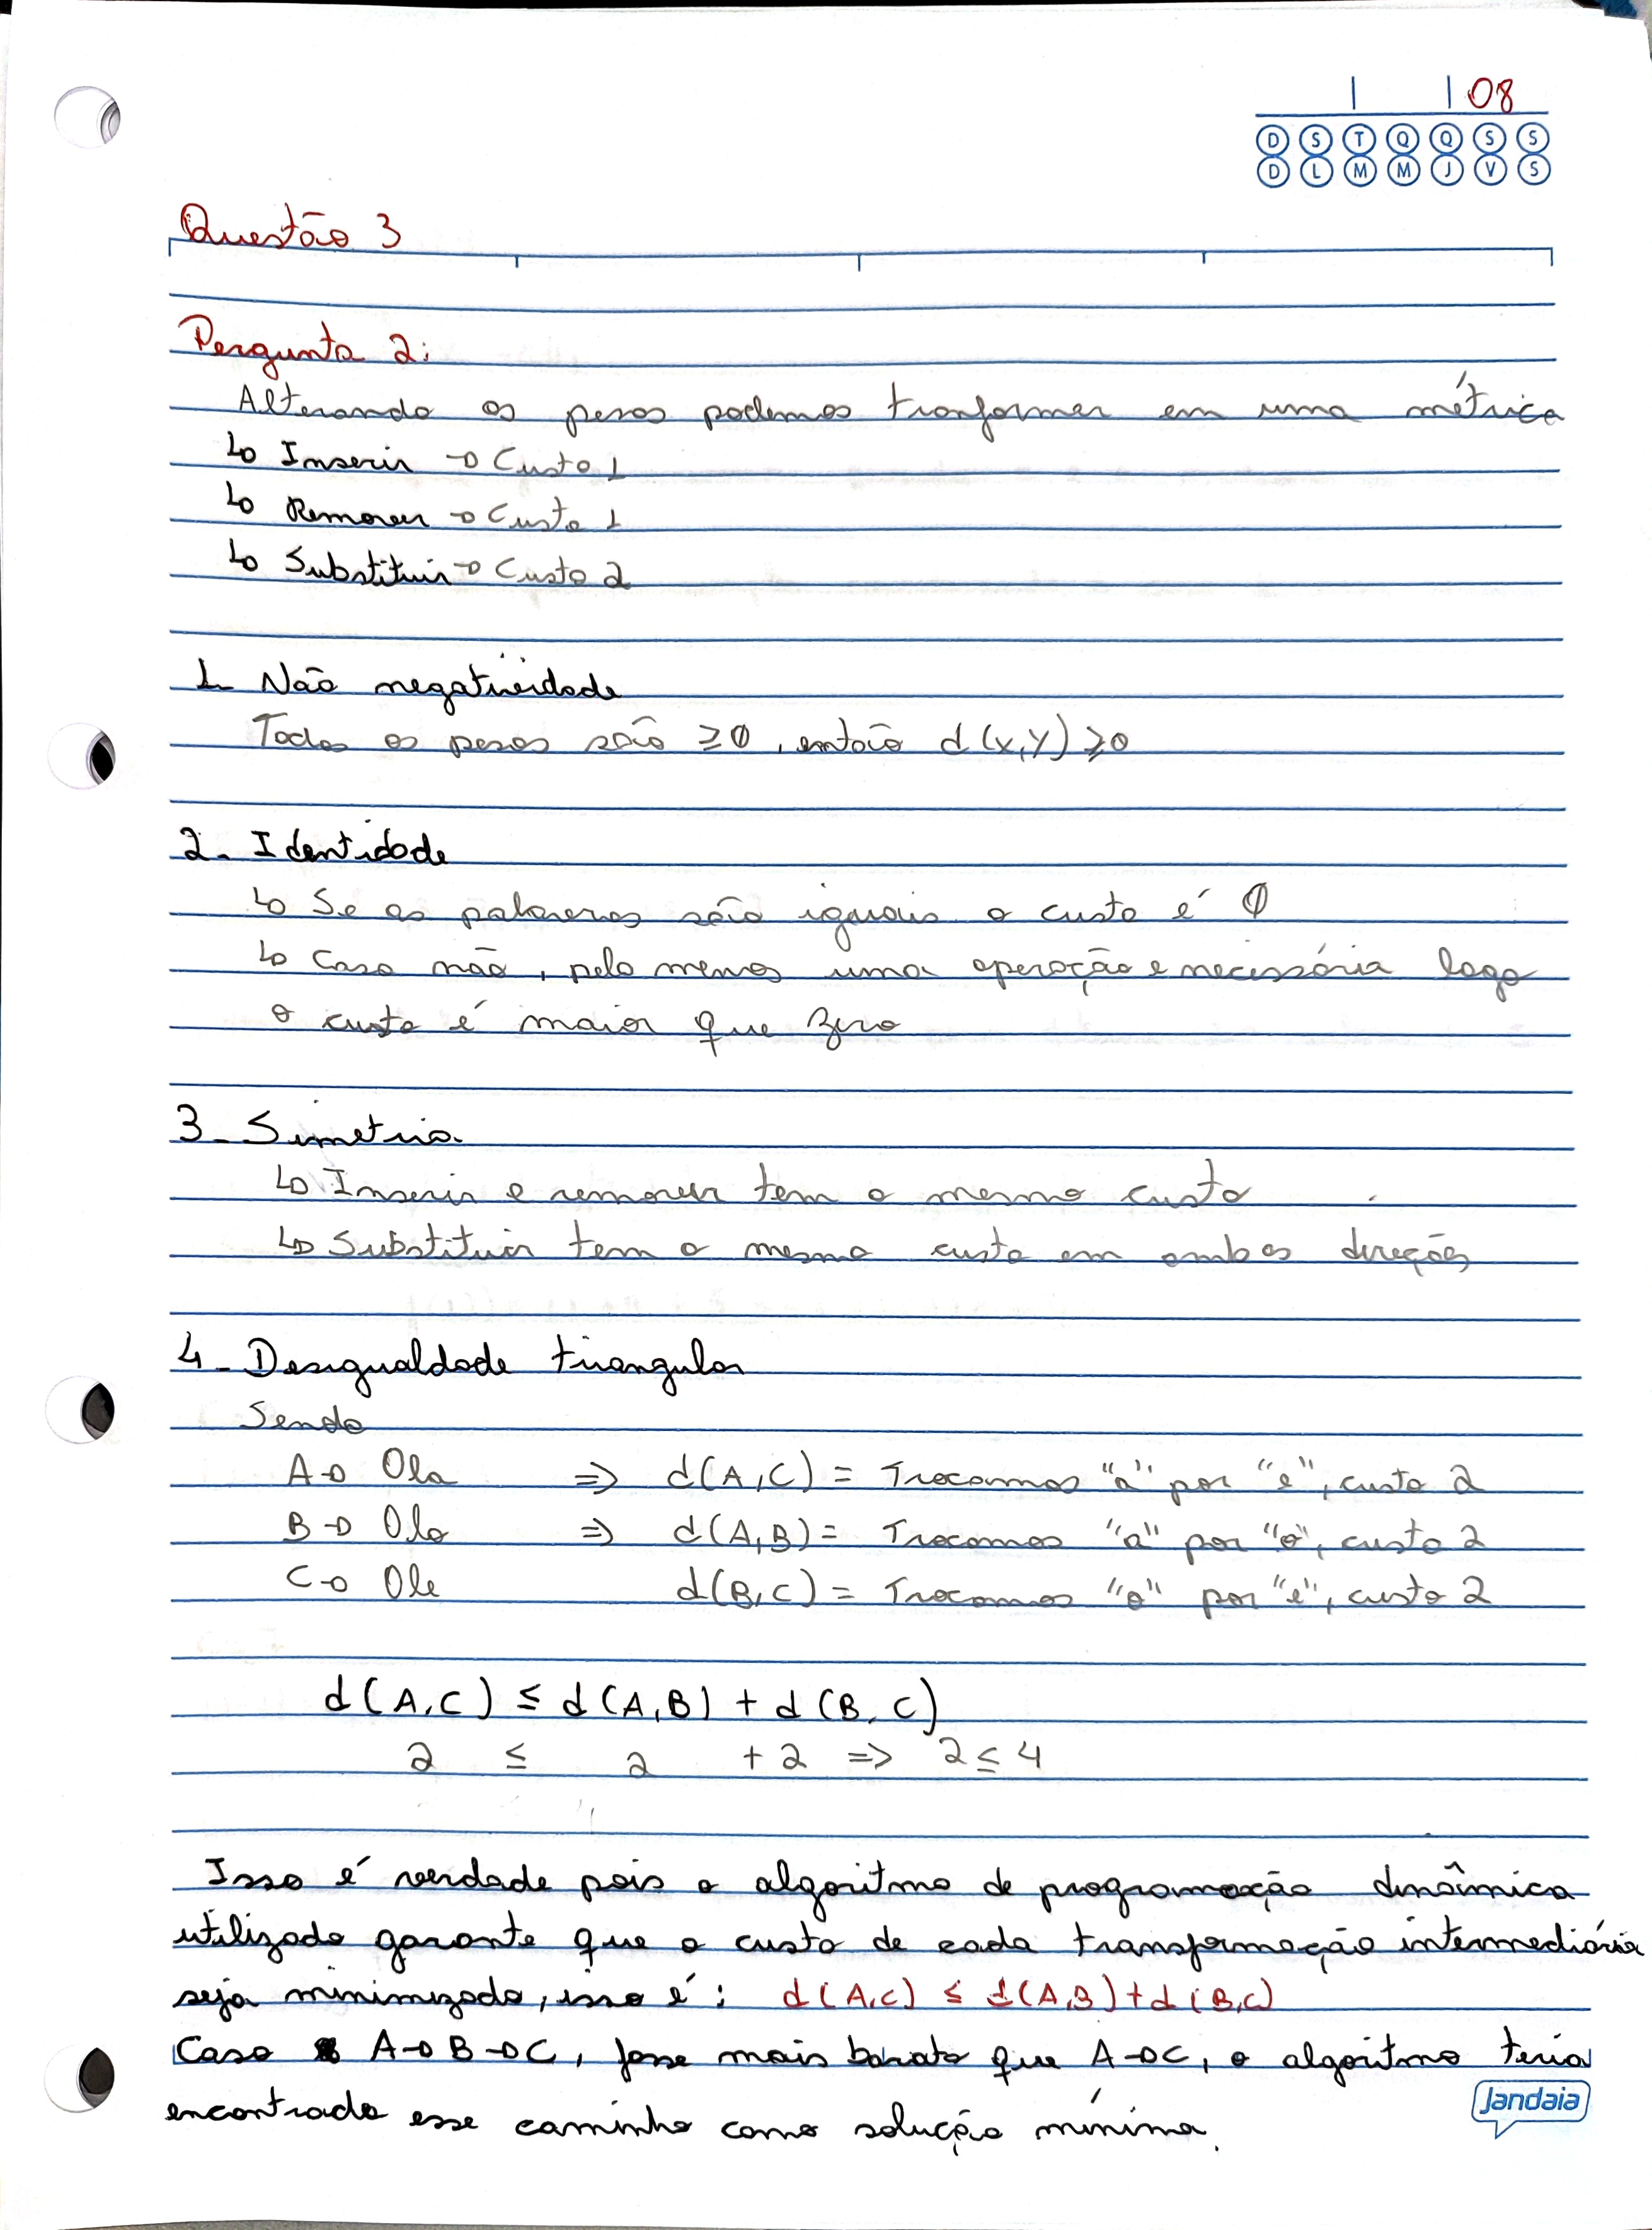 | | 08
D S T Q Q S S
D L M M J V S
Questão 3
Pergunta 2:
Alterando os pesos podemos tranformar em uma métrica
↳ Inserir → Custo 1
↳ Remover → Custo 1
↳ Substituir → Custo 2
1- Não negatividade
Todos os pesos são ≥0, então d(x,y)≥0
2- Identidade
↳ Se as palavras são iguais o custo é 0
↳ Caso não, pelo menos uma operação e necessária logo
o custo é maior que zero
3- Simetria
↳ Inserir e remover tem o mesmo custo
↳ Substituir tem o mesmo custo em ambas direções
4- Desigualdade triangular
Sendo
A→ Ola => d(A,C) = Trocamos "a" por "e", custo 2
B→ Olo => d(A,B) = Trocamos "a" por "o", custo 2
C→ Ole d(B,C) = Trocamos "o" por "e", custo 2
d(A,C) ≤ d(A,B) + d(B,C)
2 ≤ 2 + 2 => 2 ≤ 4
Isso é verdade pois o algoritmo de programação dinâmica
utilizado garante que o custo de cada transformação intermediária
seja minimizado, isso é: d(A,C) ≤ d(A,B)+d(B,C)
Caso A→B→C, fosse mais barato que A→C, o algoritmo teria
encontrado esse caminho como solução mínima.
Jandaia